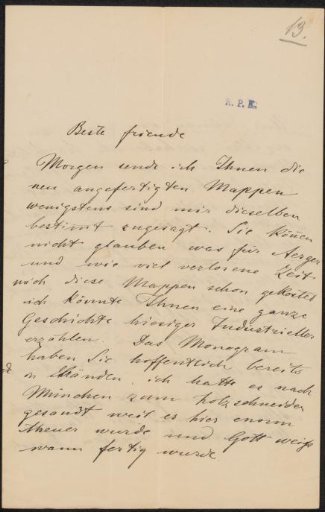 13.
R. P. K.
Beste friende
Morgen sende ich Ihnen die
neu angefertigten Mappen
wenigstens sind mir dieselben
bestimt zugesagt. Sie können
nicht glauben was für Aerger
und wie viel verlorene Zeit
mich diese Mappen schon gekostet
ich könnte Ihnen eine ganze
Geschichte hiesiger Industrieller
erzählen. Das Monogram
haben Sie hoffentlich bereits
in Händen. ich hatte es nach
Munchen zum holzschneider
gesandt weil es hier enorm
theuer wurde und Gott weiss
wann fertig wurde